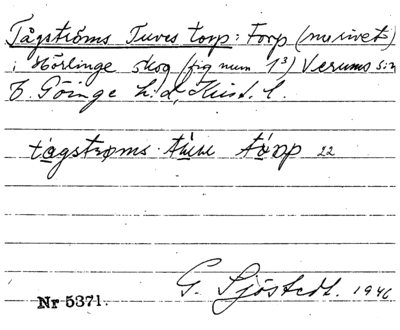 Tågströms Tuves torp: Torp (nu rivet)
i Hörlinge skog (fig num 1³) Verums s:n
V. Göinge h:d, Krist. l.
tågstrøms tuve tårp 22
G. Sjöstedt. 1946
Nr 5371.